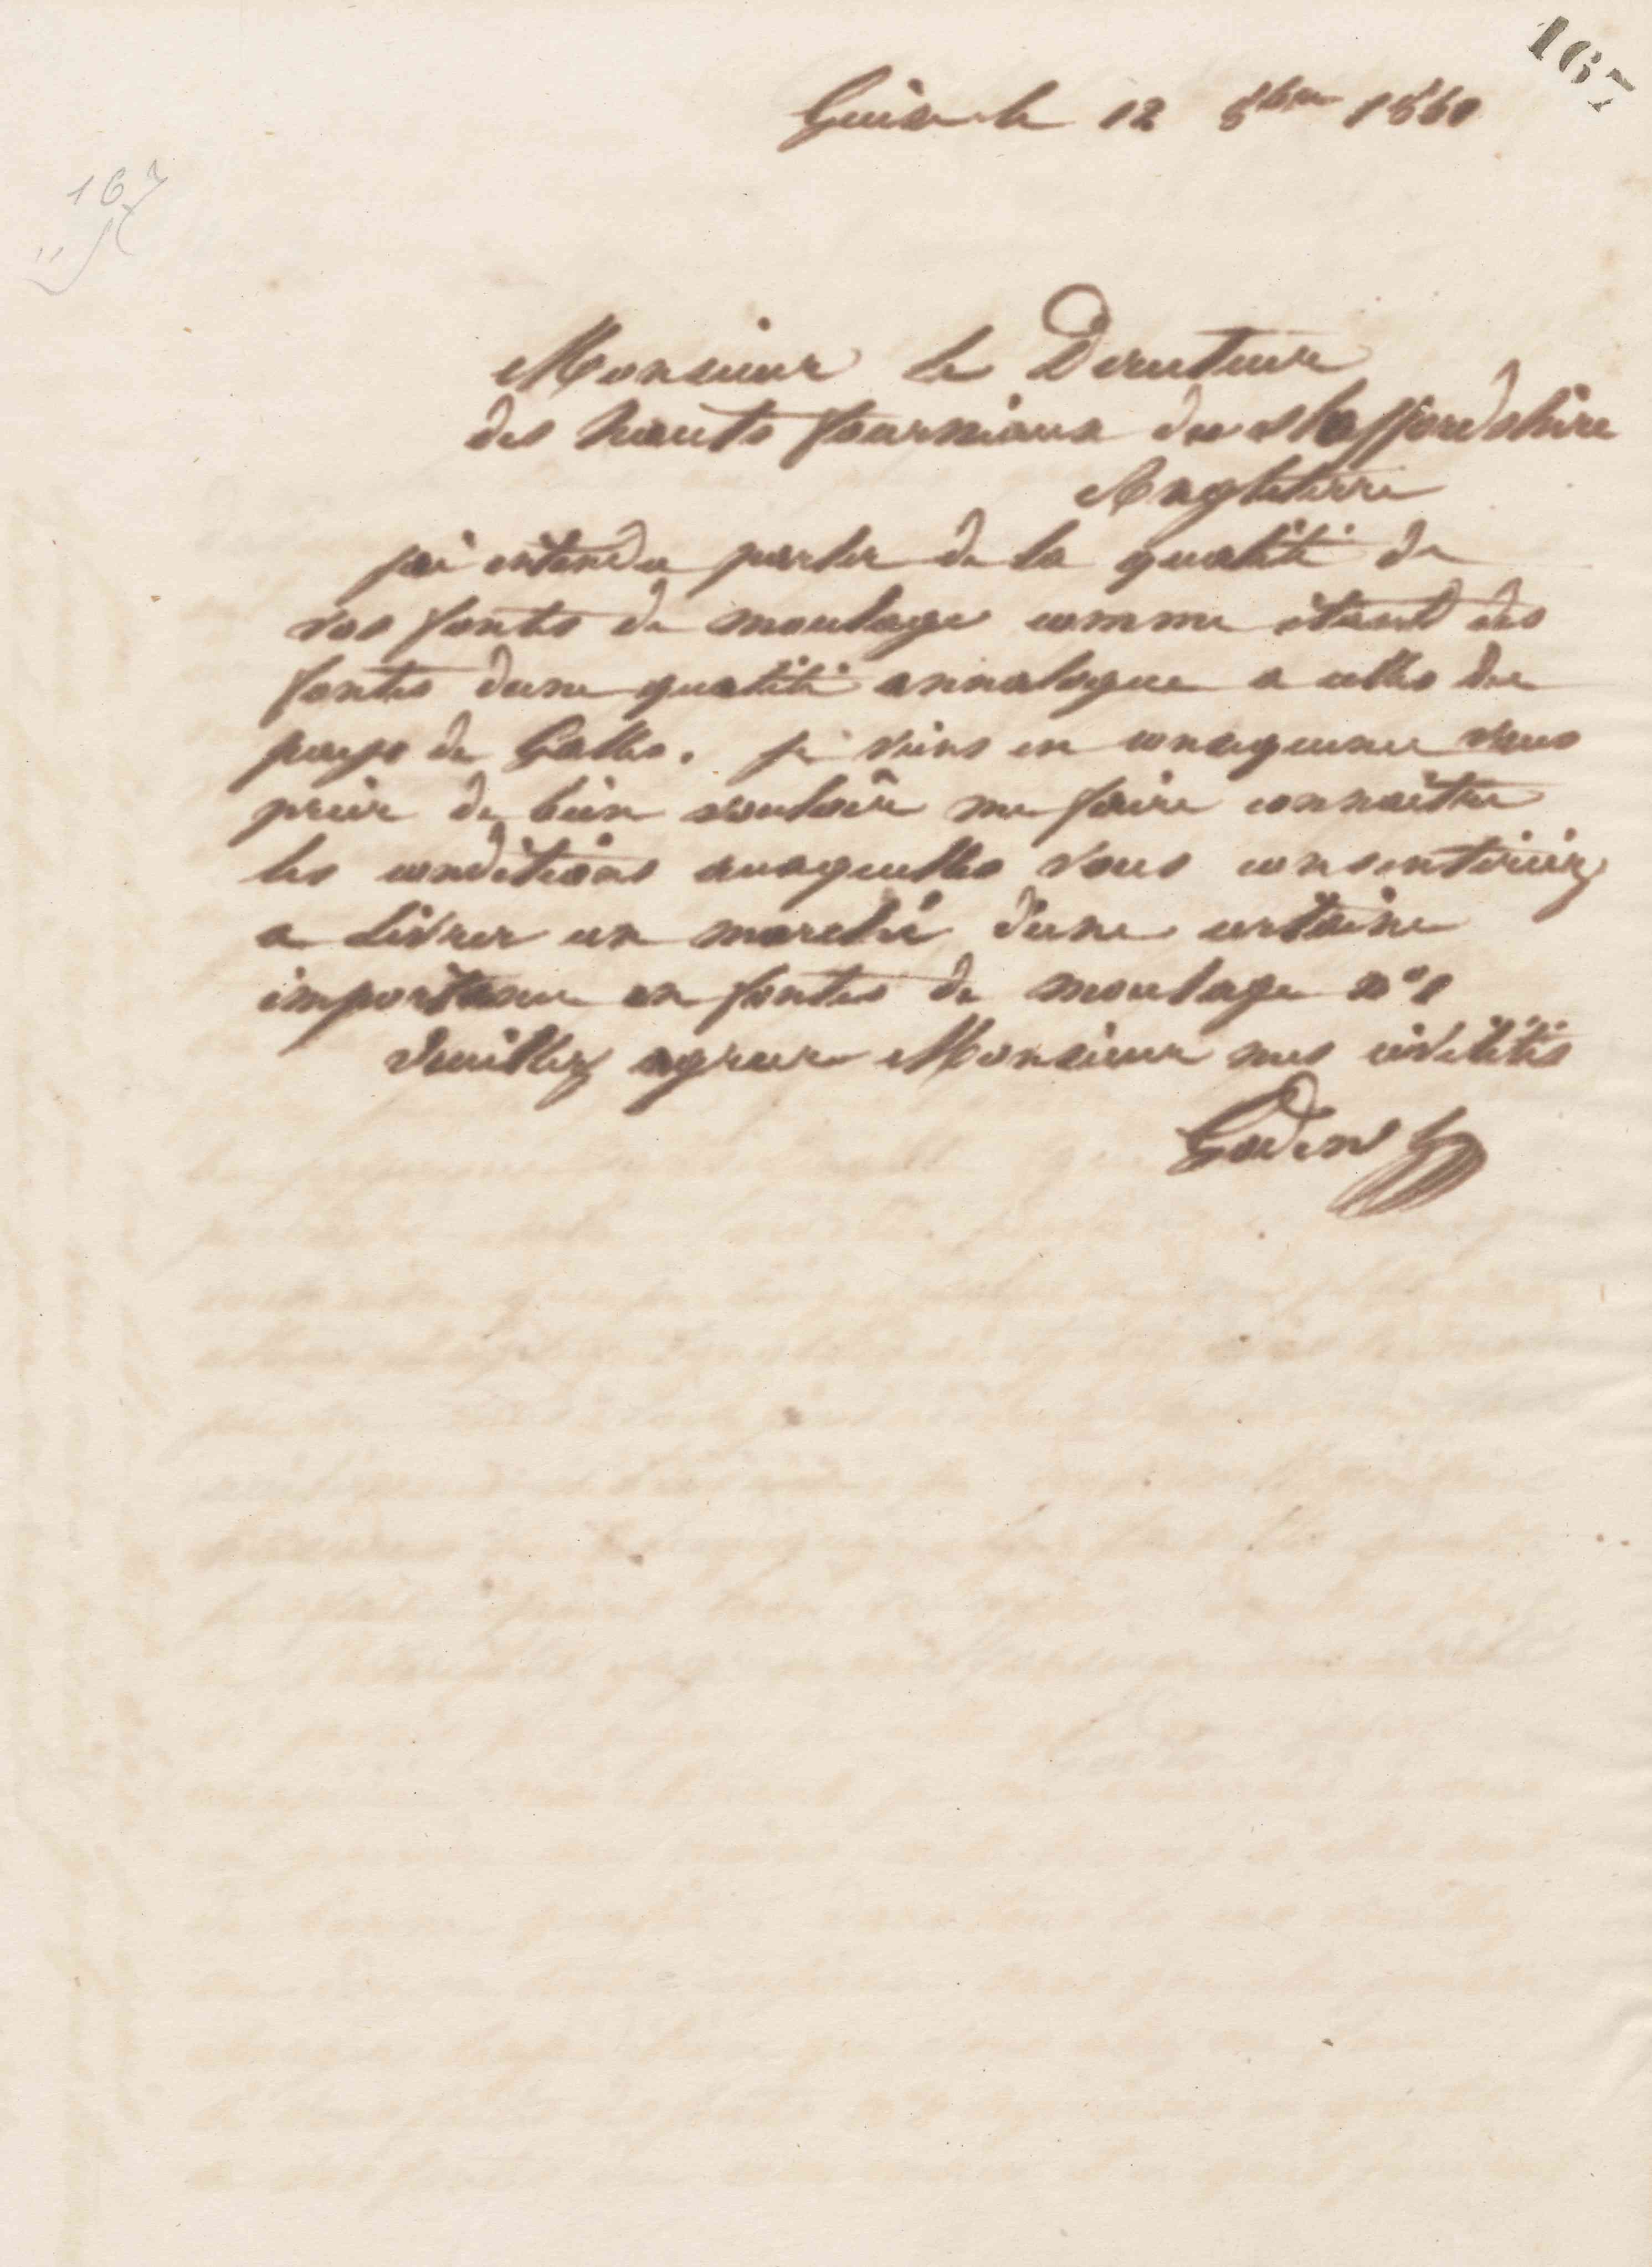 167
Guise le 12 8bre 1860
167
Monsieur le Directeur
des hauts fourneaux du staffordshire
Angleterre
jai entendu parler de la qualité de
vos fontes de moulage comme étant des
fontes dune qualité annalogue a celles du
pays de Galles. je viens en consequence vous
prier de bien vouloir me faire connaitre
les conditions auxquelles vous consentiriez
a livrer un marché d'une certaine
importance en fontes de moulage n° 1
Veuillez agreer Monsieur mes civilités
Godin